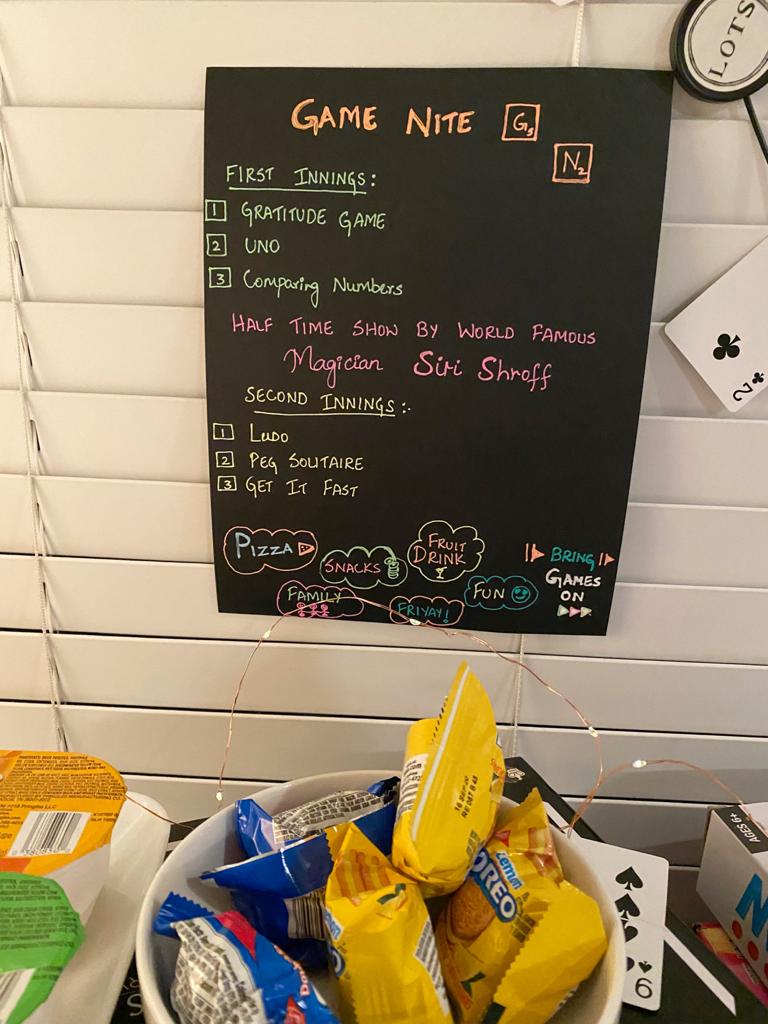 LOTS
GAME NITE G5
N2
FIRST INNINGS:
1 GRATITUDE GAME
2 UNO
3 Comparing Numbers
HALF TIME SHOW BY WORLD FAMOUS
Magician Siri Shroff
SECOND INNINGS:-
1 LUDO
2 PEG SOLITAIRE
3 GET IT FAST
PIZZA
SNACKS
FRUIT
DRINK
FAMILY
FRIYAY!
FUN
BRING
GAMES
ON
2
AGES 6+
Lemon
OREO
9